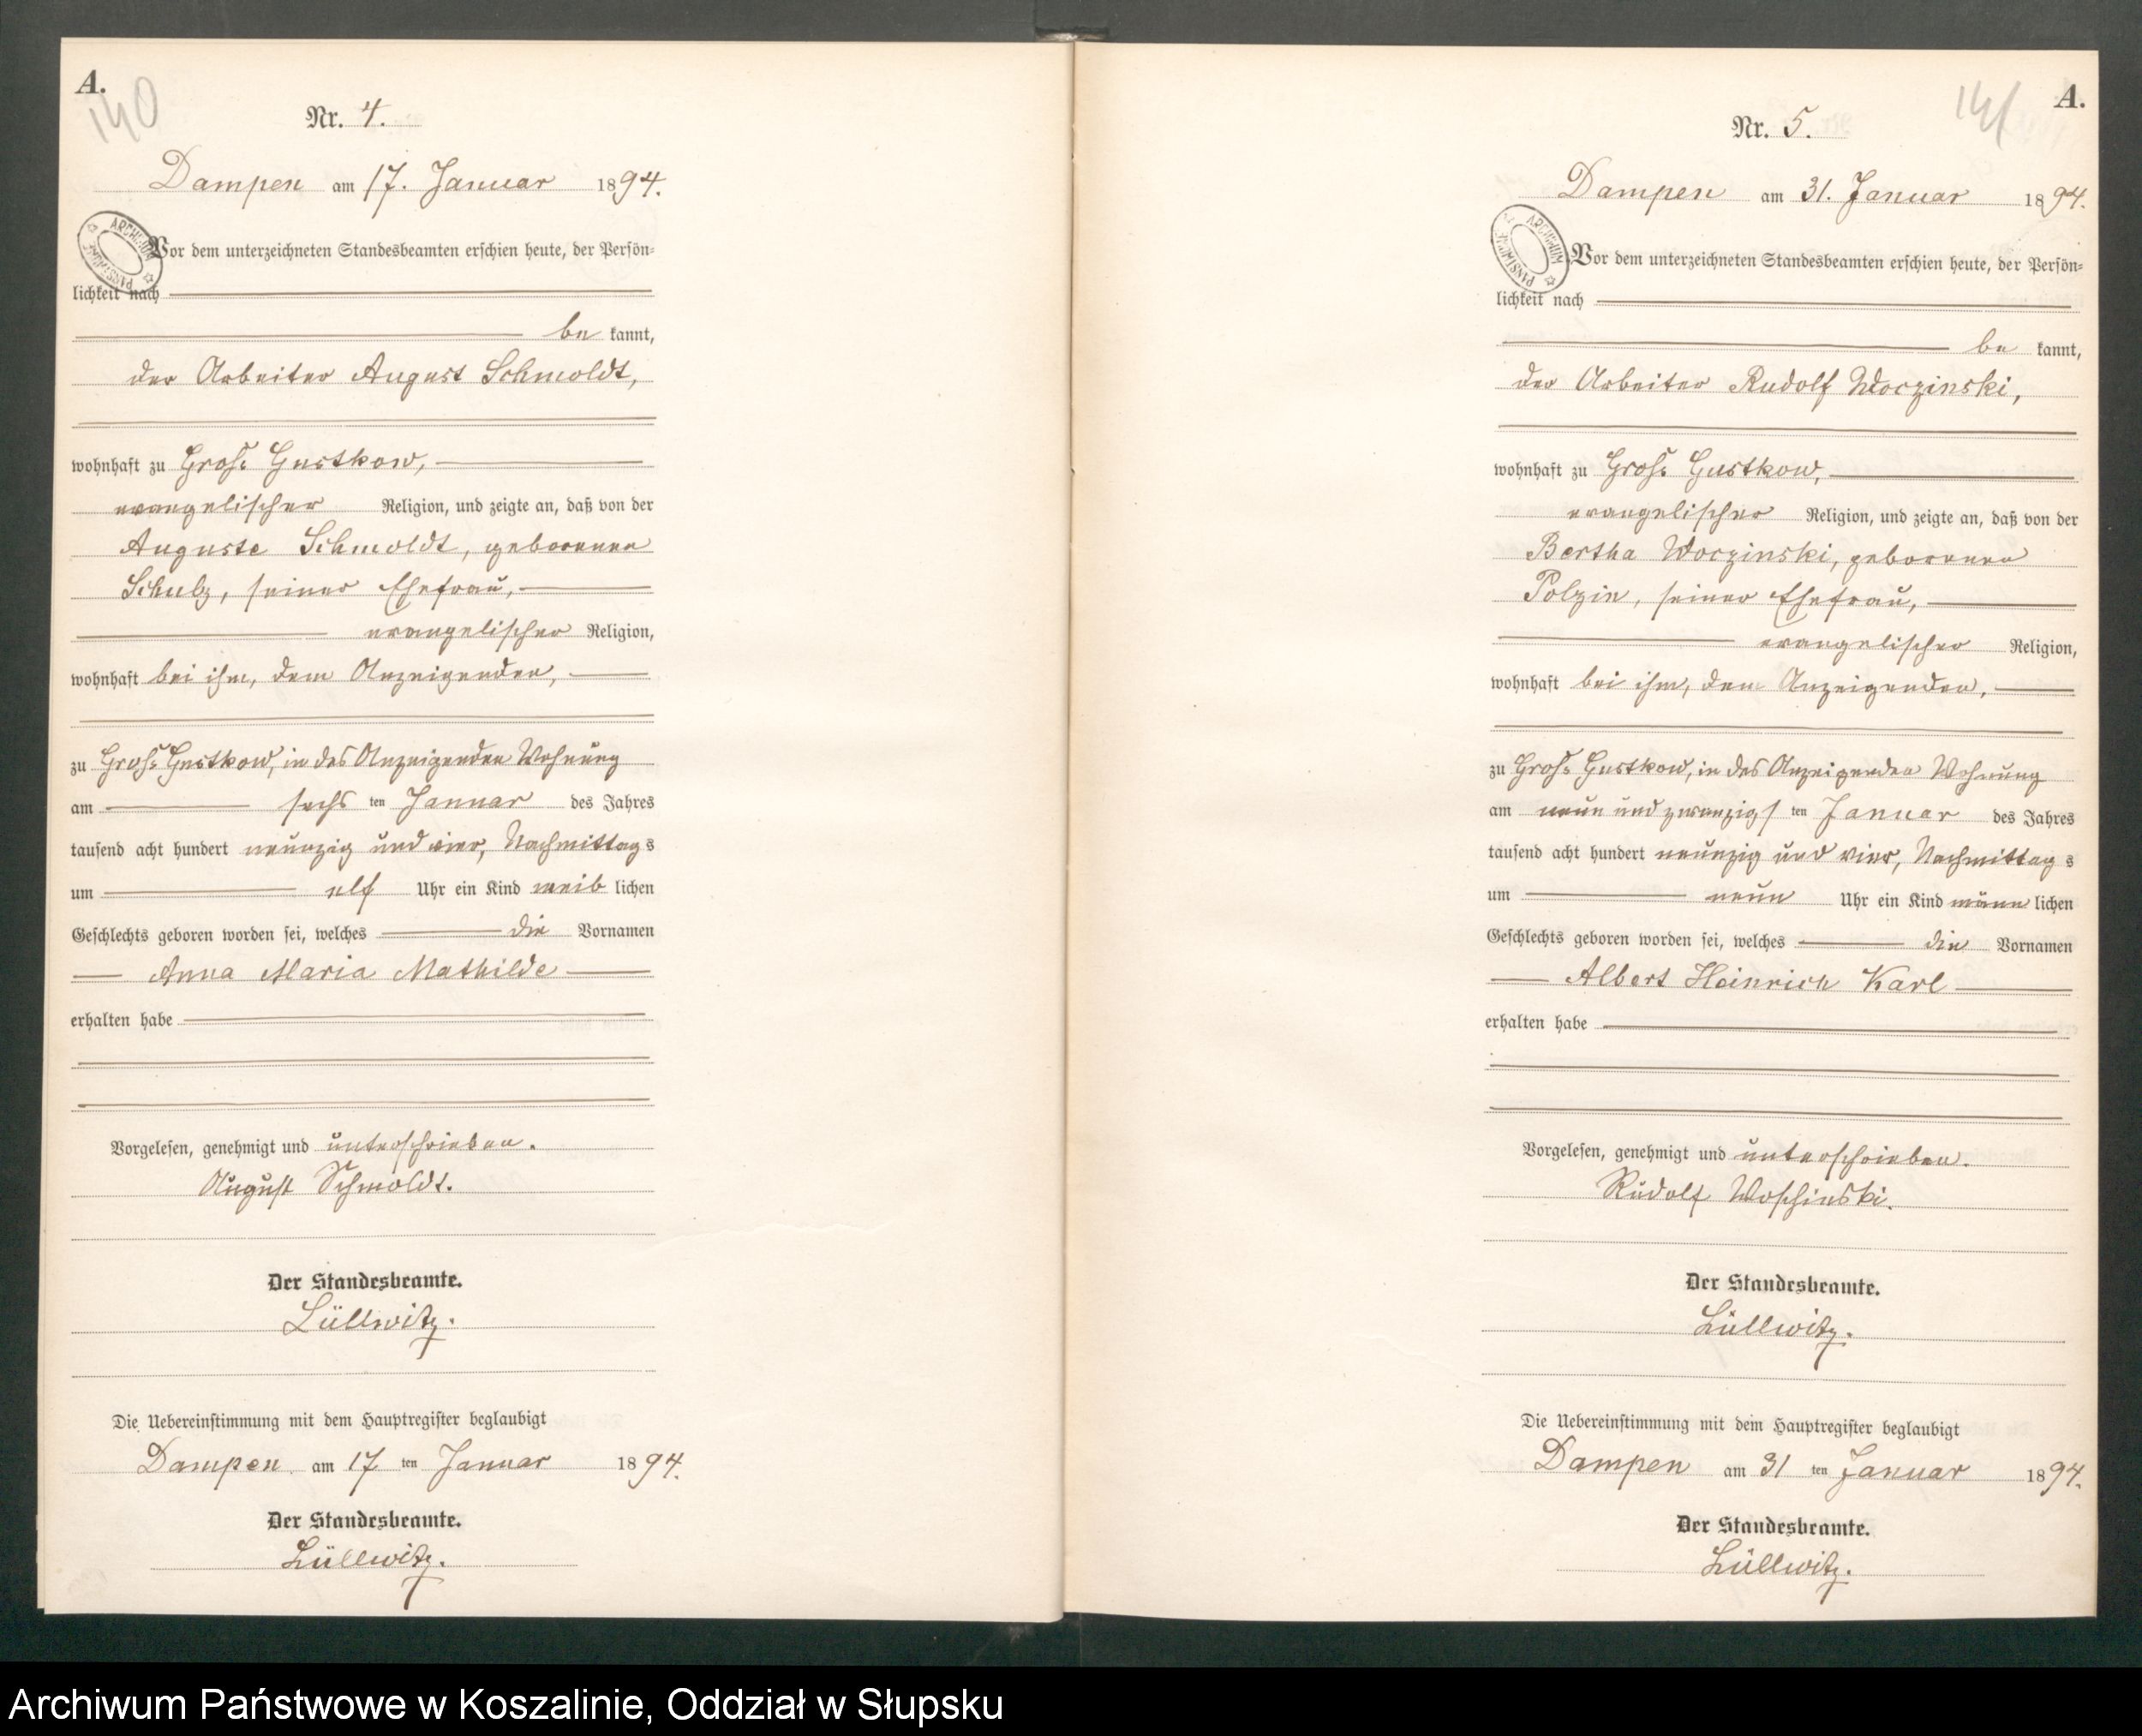 A.
140
Nr. 4.
Dampen am 17. Januar 1894.
Vor dem unterzeichneten Standesbeamten erschien heute, der Persön-
lichkeit nach
be kannt,
der Arbeiter August Schmoldt,
wohnhaft zu Groß Gustkow,
evangelischer Religion, und zeigte an, daß von der
Auguste Schmoldt, geborenen
Schulz, seiner Ehefrau,
evangelischer Religion,
wohnhaft bei ihm, dem Anzeigenden,
zu Groß Gustkow, in des Anzeigenden Wohnung
am sechs ten Januar des Jahres
tausend acht hundert neunzig und vier, Nachmittag s
um elf Uhr ein Kind weib lichen
Geschlechts geboren worden sei, welches die Vornamen
Anna Maria Mathilde
erhalten habe
Vorgelesen, genehmigt und unterschrieben.
August Schmoldt.
Der Standesbeamte.
Lüllwitz.
Die Uebereinstimmung mit dem Hauptregister beglaubigt
Dampen am 17 ten Januar 1894.
Der Standesbeamte.
Lüllwitz.
141
A.
Nr. 5.
Dampen am 31. Januar 1894.
Vor dem unterzeichneten Standesbeamten erschien heute, der Persön-
lichkeit nach
be kannt,
der Arbeiter Rudolf Woczinski,
wohnhaft zu Groß Gustkow,
evangelischer Religion, und zeigte an, daß von der
Bertha Woczinski, geborenen
Polzin, seiner Ehefrau,
evangelischer Religion,
wohnhaft bei ihm, dem Anzeigenden,
zu Groß Gustkow, in des Anzeigenden Wohnung
am neun und zwanzigs ten Januar des Jahres
tausend acht hundert neunzig und vier, Nachmittag s
um neun Uhr ein Kind männ lichen
Geschlechts geboren worden sei, welches die Vornamen
Albert Heinrich Karl
erhalten habe
Vorgelesen, genehmigt und unterschrieben.
Rudolf Woschinski.
Der Standesbeamte.
Lüllwitz.
Die Uebereinstimmung mit dem Hauptregister beglaubigt
Dampen am 31 ten Januar 1894.
Der Standesbeamte.
Lüllwitz.
Archiwum Państwowe w Koszalinie, Oddział w Słupsku